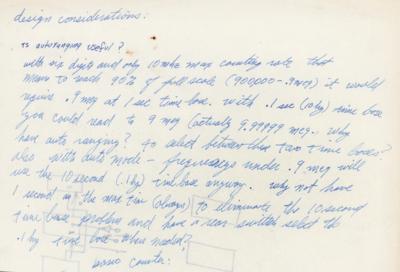 design considerations:
is autoranging useful?
with six digits and only 10 mhz max counting rate that
means to reach 90% of full scale (900000 - .9 meg) it would
require .9 meg at 1 sec time base. with .1 sec (10 hz) time base
you could read to 9 meg (actually 9.99999 meg). why
have auto ranging? to select between these two time bases?
also with auto mode - frequencies under .9 meg will
use the 10 second (.1 hz) time base anyway. why not have
1 second as the max time (always) to eliminate the 10 second
time base problem and have a rear switch select the
.1 hz time base when needed?
basic counter: